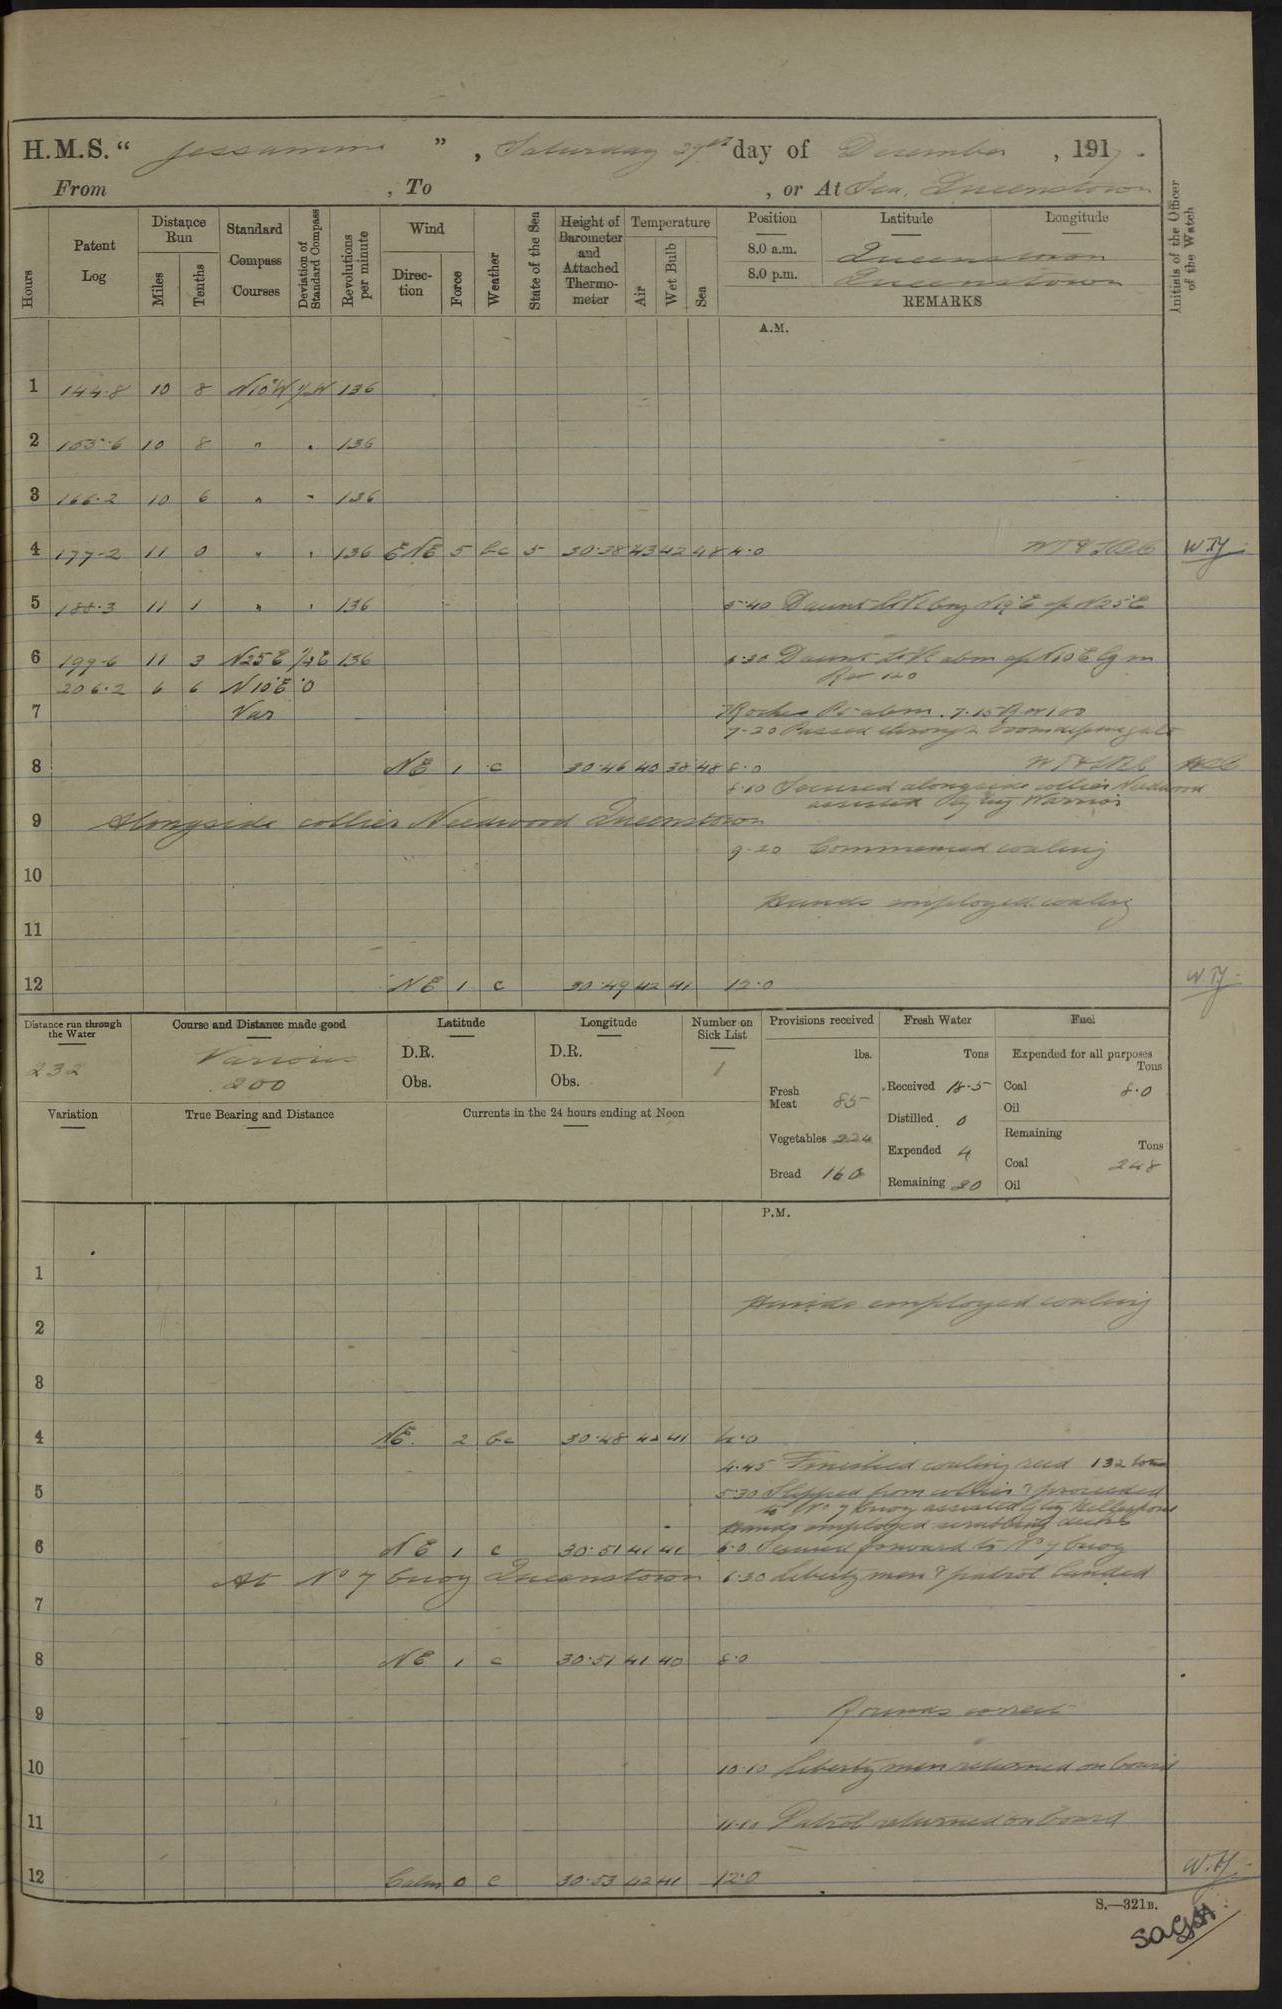 H.M.S. “ Jessamine ” , Saturday 29th day of December , 1917.
From , To , or At Sea, Queenstown
Hours
Patent Log
Distance Run
Miles
Tenths
Standard Compass Courses
Deviation of Standard Compass
Revolutions per minute
Wind
Direction
Force
Weather
State of the Sea
Height of Barometer and Attached Thermometer
Temperature
Air
Wet Bulb
Sea
Position Latitude Longitude
8.0 a.m. Queenstown
8.0 p.m. Queenstown
REMARKS
Initials of the Officer of the Watch
A.M.
1 144.8 10 8 N10°W ½W 136
2 155.6 10 8 " " 136
3 166.2 10 6 " " 136
4 177.2 11 0 " " 136 ENE 5 bc 5 30.38 43 42 48 4.0
5 188.3 11 1 " " 136 5.40 Daunt Lt Vl
6 199.6 11 3 N25E ¼E 136 6.30 Daunt Lt Vl abm a/c N10E
206.2 6 6 N10°E 0 Rev 120
7 Var 7 Roches Pt abm. 7.15 Rev 100
7.20 Passed through boom defence gate
8 NE 1 c 30.46 40 38 48 8.0
8.10 Secured alongside collier Needwood
assisted by tug Warrior
9 Alongside collier Needwood Queenstown
9.20 Commenced coaling
10
Hands employed coaling
11
12 NE 1 c 30.49 42 41 12.0
Distance run through the Water
232
Course and Distance made good
Various
200
Latitude
D.R.
Obs.
Longitude
D.R.
Obs.
Number on Sick List
1
Provisions received
lbs.
Fresh Meat 85
Vegetables 224
Bread 160
Fresh Water
Tons
Received 18.5
Distilled 0
Expended 4
Remaining 20
Fuel
Expended for all purposes
Tons
Coal 8.0
Oil
Remaining
Tons
Coal 248
Oil
Variation
True Bearing and Distance
Currents in the 24 hours ending at Noon
P.M.
1
Hands employed coaling
2
3
4 NE. 2 bc 30.48 42 41 4.0
4.45 Finished coaling recd 132 tons
5 5.30 Slipped from collier & proceeded
to No 7 buoy assisted by tug Hellespont
Hands employed scrubbing decks
6 NE 1 c 30.51 41 41 6.0 Secured forward to No 7 buoy
At No 7 buoy Queenstown 6.30 Liberty men & patrol landed
7
8 NE 1 c 30.51 41 40 8.0
9 Rounds correct
10 10.10 Liberty men returned on board
11 11.10 Patrol returned on board
12 Calm 0 c 30.53 42 41 12.0
S.—321B.